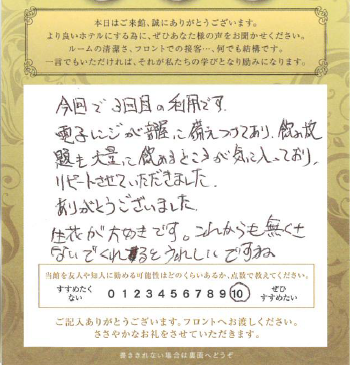 本日はご来館、誠にありがとうございます。
より良いホテルにする為に、ぜひあなた様の声をお聞かせください。
ルームの清潔さ、フロントでの接客…、何でも結構です。
一言でもいただければ、それが私たちの学びとなり励みになります。
今回で3回目の利用です.
電子レンジが部屋に備えつけてあり、飲み放
題も大量に飲めるところが気に入っており、
リピートさせていただきました.
ありがとうございました.
生花が大好きです。これからも無くさ
ないでくれるとうれしいですね
当館を友人や知人に勧める可能性はどのくらいあるか、点数で教えてください。
すすめたくない 0 1 2 3 4 5 6 7 8 9 10 ぜひすすめたい
ご記入ありがとうございます。フロントへお渡しください。
ささやかなお礼をさせていただきます。
書ききれない場合は裏面へどうぞ